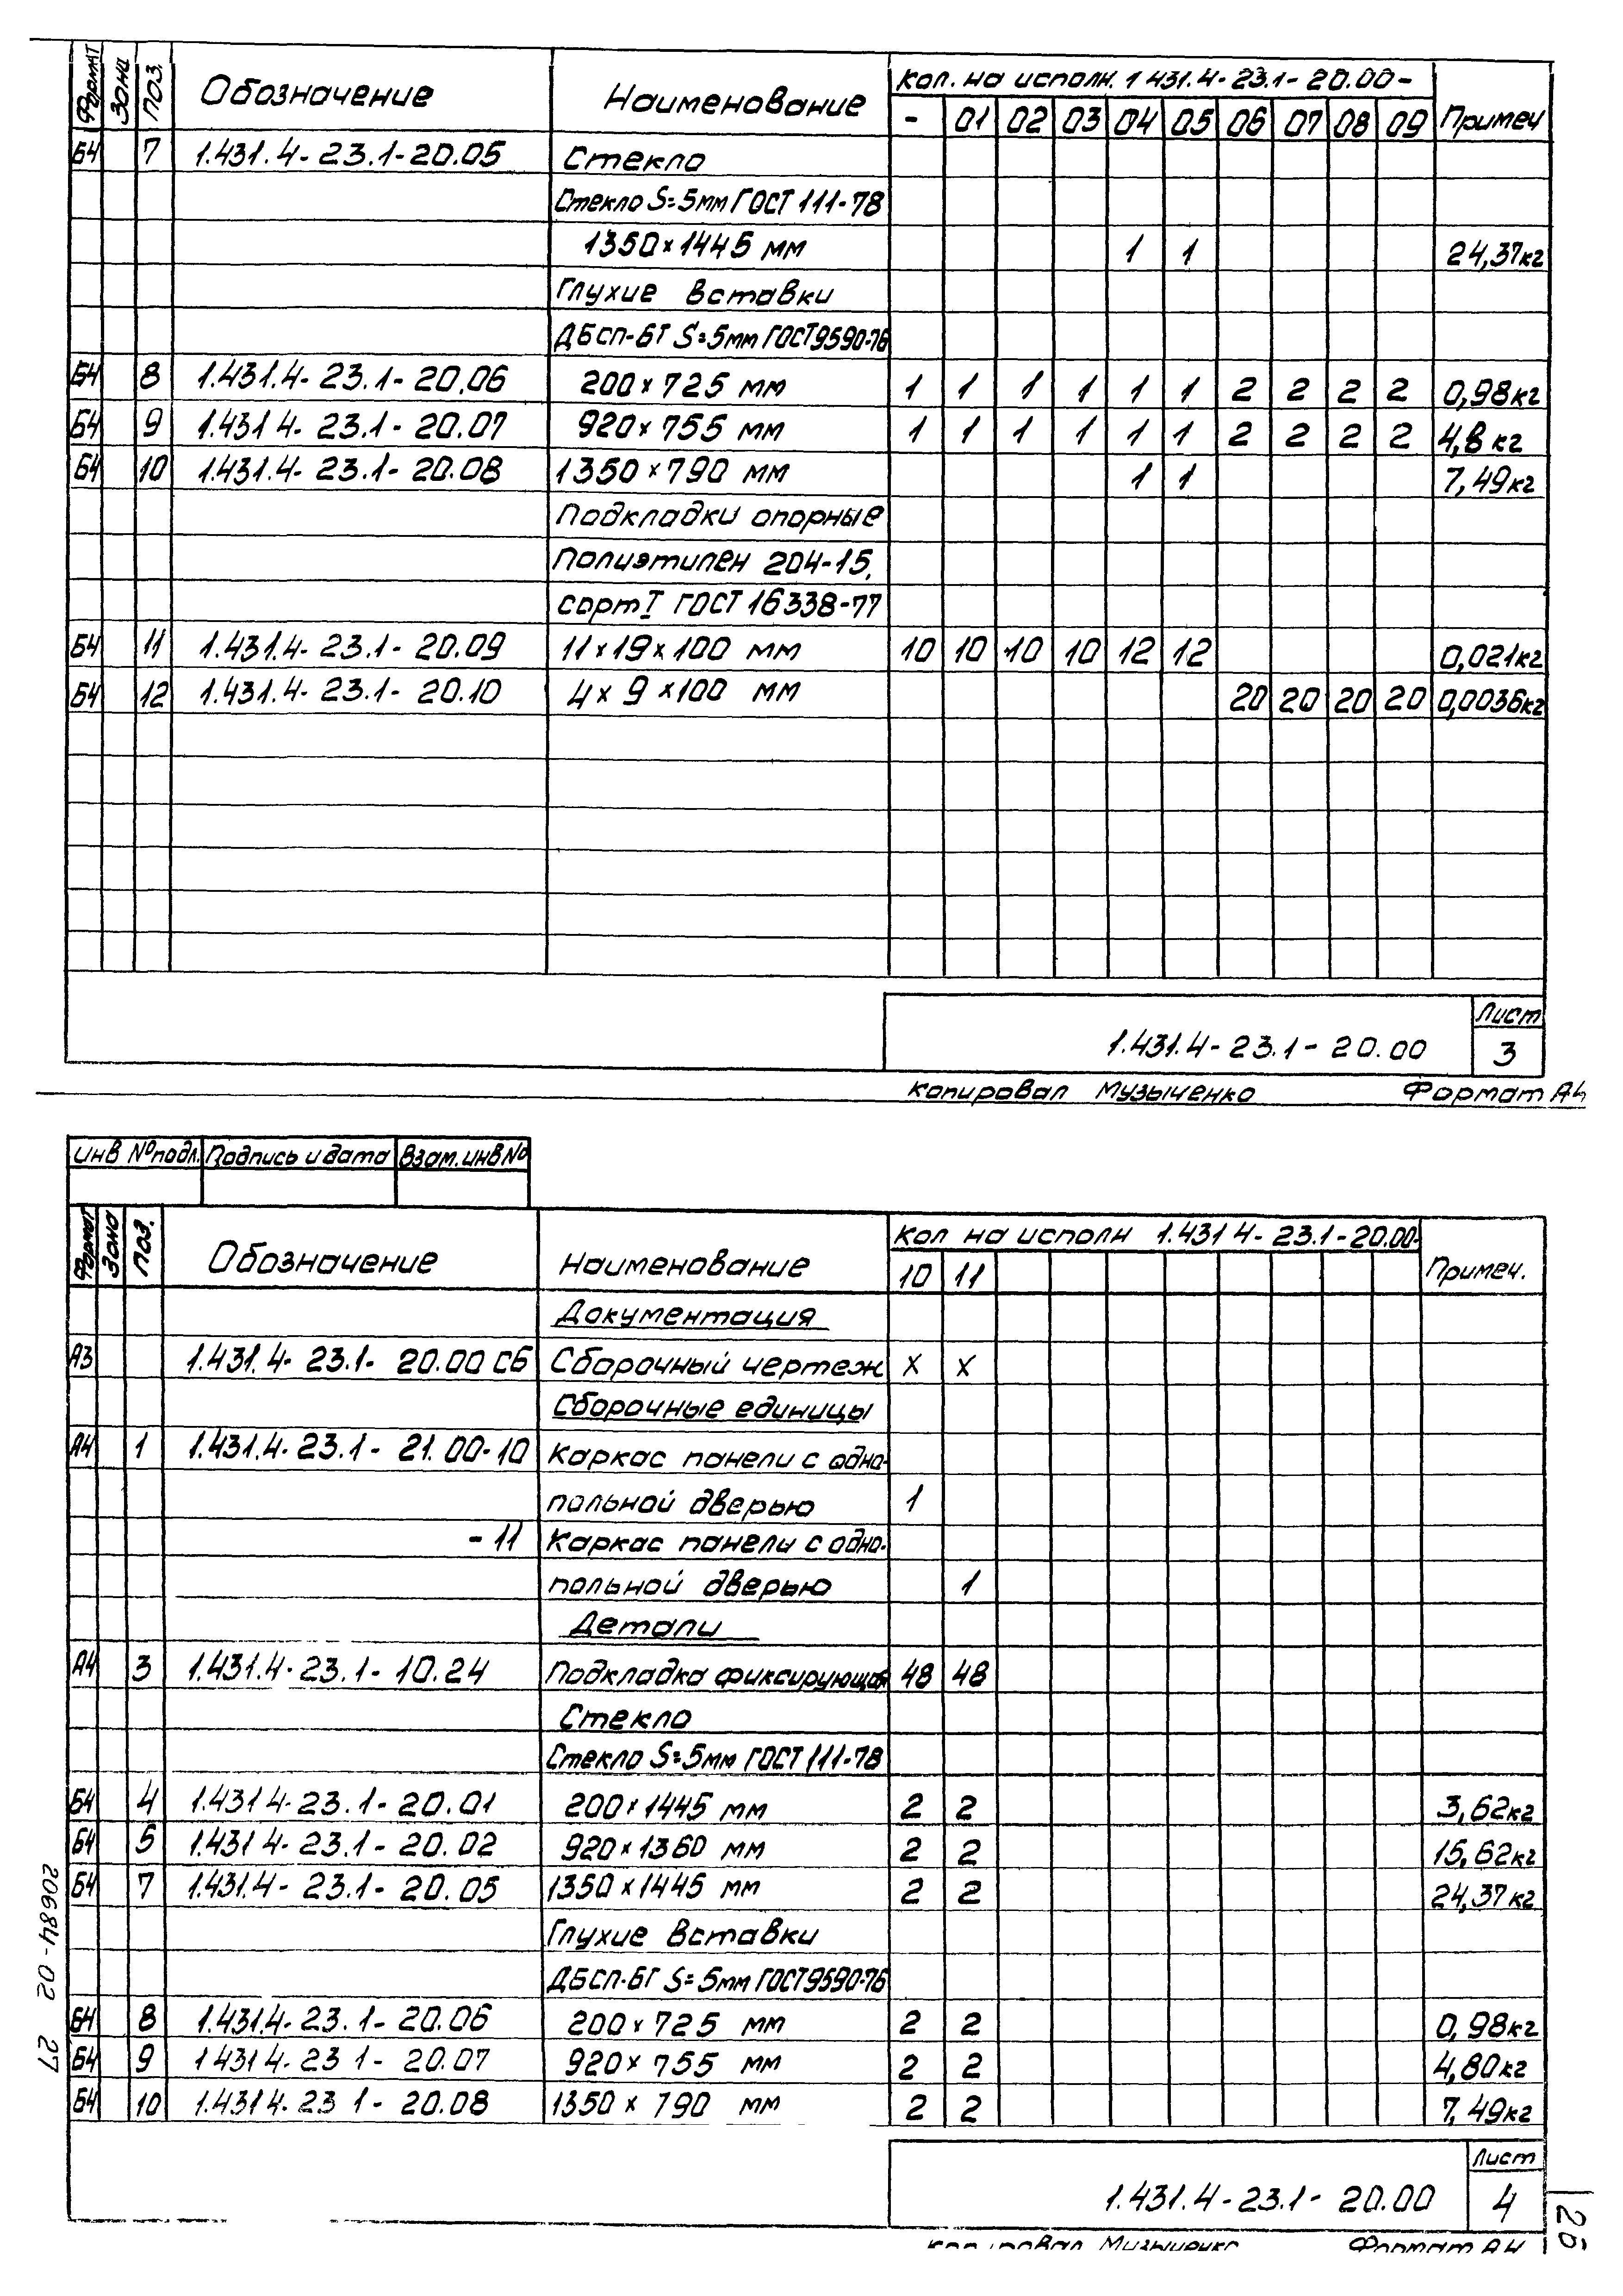 Формат Зона Поз. Обозначение Наименование Кол. на исполн. 1 431.4-23.1-20.00- Примеч
- 01 02 03 04 05 06 07 08 09
Б4 7 1.431.4-23.1-20.05 Стекло
Стекло S=5мм ГОСТ 111-78
1350×1445 мм 1 1 24,37кг
Глухие вставки
ДБСП-БТ S=5мм ГОСТ9590-76
Б4 8 1.431.4-23.1-20.06 200×725 мм 1 1 1 1 1 1 2 2 2 2 0,98кг
Б4 9 1.431 4-23.1-20.07 920×755 мм 1 1 1 1 1 1 2 2 2 2 4,8 кг
Б4 10 1.431.4-23.1-20.08 1350×790 мм 1 1 7,49кг
Подкладки опорные
Полиэтилен 204-15,
сорт I ГОСТ 16338-77
Б4 11 1.431.4-23.1-20.09 11×19×100 мм 10 10 10 10 12 12 0,021кг
Б4 12 1.431.4-23.1-20.10 4×9×100 мм 20 20 20 20 0,0036кг
1.431.4-23.1-20.00 Лист
3
Копировал Музыченко Формат А4
инв № подл. Подпись и дата Взам. инв №
Формат Зона Поз. Обозначение Наименование Кол на исполн 1.431 4-23.1-20.00- Примеч.
10 11
Документация
А3 1.431.4-23.1-20.00 СБ Сборочный чертеж х х
Сборочные единицы
А4 1 1.431.4-23.1-21.00-10 Каркас панели с одно-
польной дверью 1
-11 Каркас панели с одно-
польной дверью 1
Детали
А4 3 1.431.4-23.1-10.24 Подкладка фиксирующая 48 48
Стекло
Стекло S=5мм ГОСТ 111-78
Б4 4 1.431 4-23.1-20.01 200×1445 мм 2 2 3,62кг
Б4 5 1.431 4-23.1-20.02 920×1360 мм 2 2 15,62кг
Б4 7 1.431.4-23.1-20.05 1350×1445 мм 2 2 24,37кг
Глухие вставки
ДБСП-БГ S=5мм ГОСТ9590-76
Б4 8 1.431.4-23.1-20.06 200×725 мм 2 2 0,98кг
Б4 9 1 431 4-23 1-20.07 920×755 мм 2 2 4,80кг
Б4 10 1.431 4-23 1-20.08 1350×790 мм 2 2 7,49кг
1.431.4-23.1-20.00 Лист
4
Копировал Музыченко Формат А4
20684-02 27
26